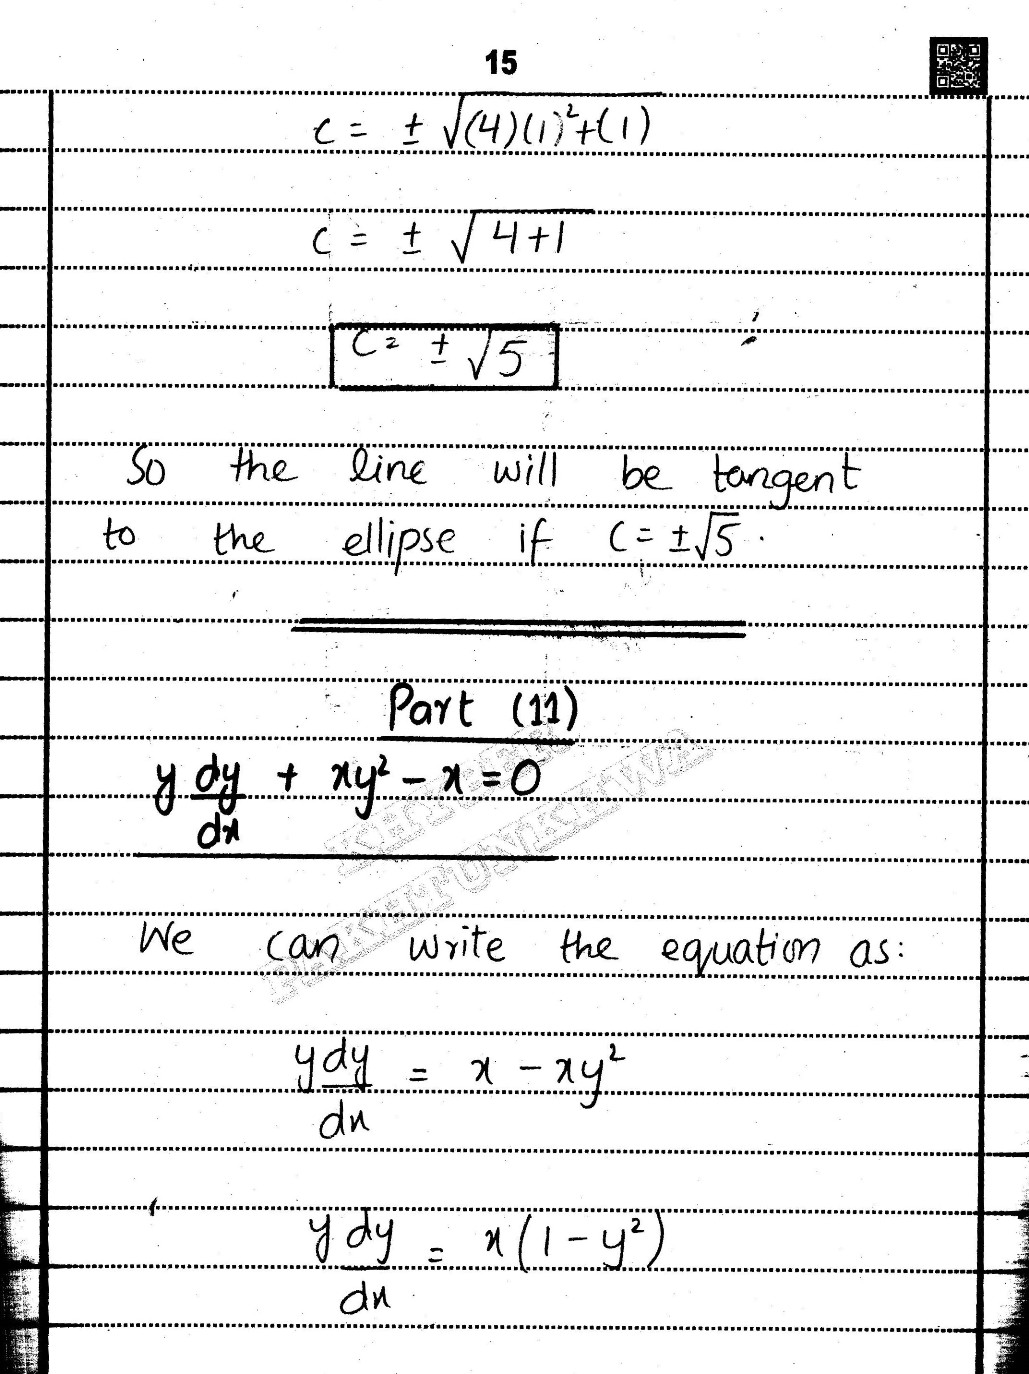 15
C = ± √(4)(1)²+(1)
C = ± √4+1
C = ± √5
So the line will be tangent
to the ellipse if C = ±√5.
Part (11)
y dy/dx + xy² - x = 0
We can write the equation as:
y dy/dx = x - xy²
y dy/dx = x(1 - y²)